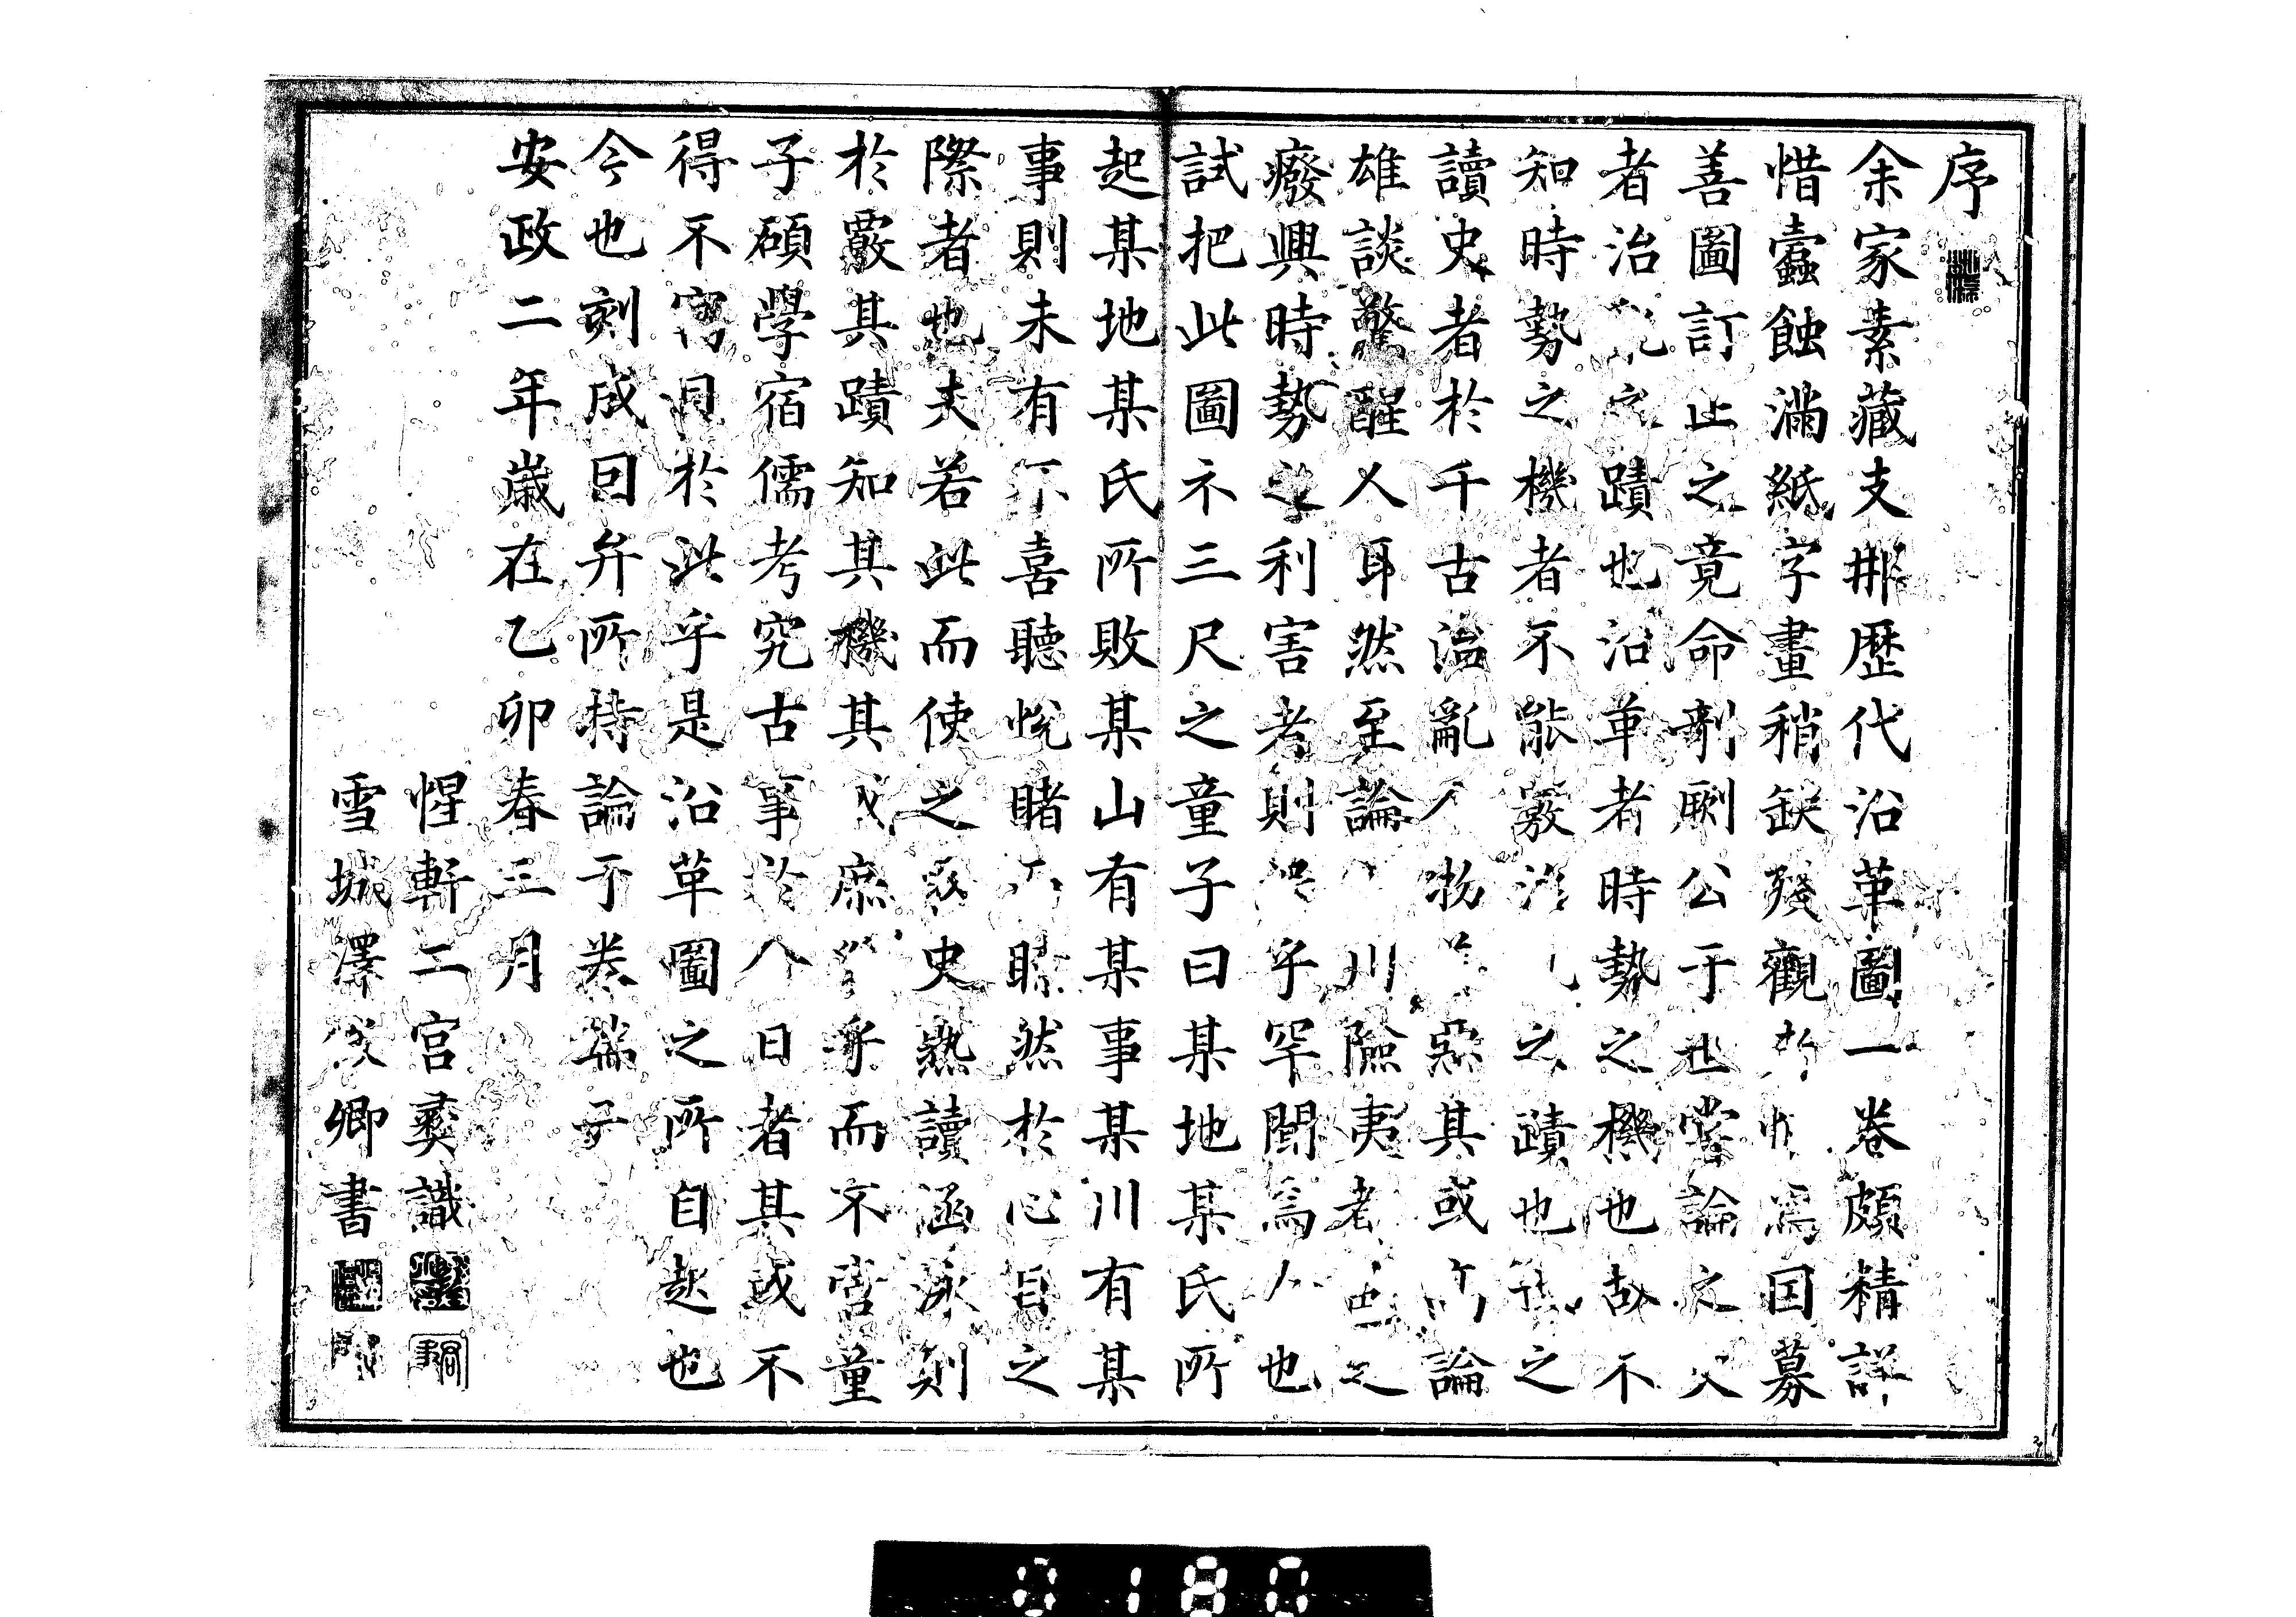 序
余家素藏支那歴代沿革圖一卷頗精詳
惜蠧蝕滿紙字畫稍缺殘觀為因募
善圖訂止之竟命剞劂公于世甞論之夫
者治乱之蹟也沿革者時勢之機也故不
知時勢之機者不能覈治乱之蹟也世之
讀史者於千古治亂人物善惡其或高論
雄談驚醒人耳然至論山川險夷考世之
癈興時勢之利害者則得乎罕聞焉人也
試把此圖示三尺之童子曰某地某氏所
起某地某氏所敗某山有某事某川有某
事則未有不喜聽悅睹瞭然於心目之
際者也夫若此而使之取史熟讀涵泳則
於覈其蹟知其機其或庶幾乎而不啻童
子碩學宿儒考究古事於今日者其或不
得不寓目於此乎是沿革圖之所自起也
今也刻成因弁所持論于卷端云
安政二年歲在乙卯春三月
惺軒二宮彛識
雪城澤俊卿書
0180